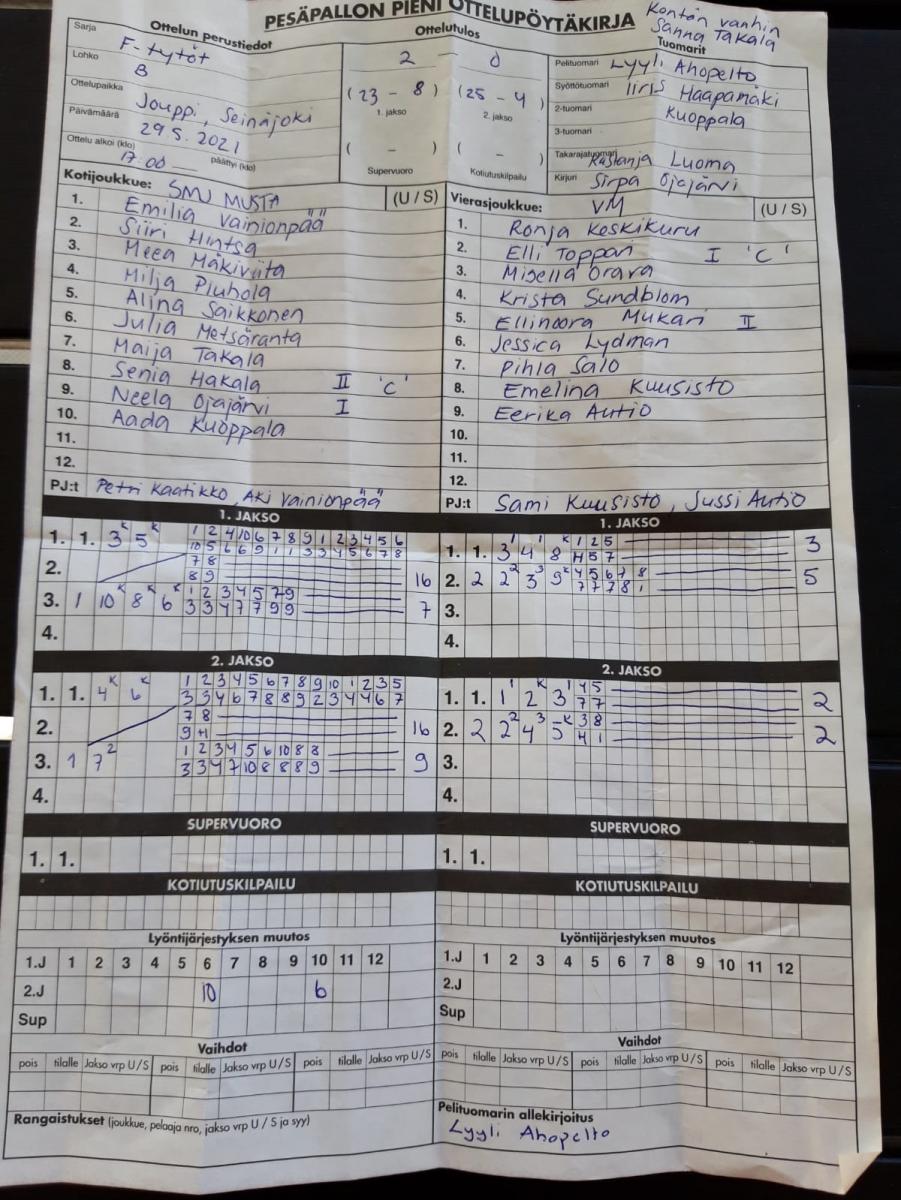 PESÄPALLON PIENI OTTELUPÖYTÄKIRJA
Kentän vanhin
Sanna Takala
Ottelun perustiedot
Sarja F-tytöt
Lohko B
Ottelupaikka Jouppi, Seinäjoki
Päivämäärä 29.5.2021
Ottelu alkoi (klo) 17.00 päättyi (klo)
Ottelutulos
2 0
(23 - 8) (25 - 4)
1. jakso 2. jakso
( - ) ( - )
Supervuoro Kotiutuskilpailu
Tuomarit
Pelituomari Lyyli Ahopelto
Syöttötuomari Iiris Haapamäki
2-tuomari Kuoppala
3-tuomari
Takarajatuomari Luoma
Kirjuri Sirpa Ojajärvi
Kotijoukkue: SMJ MUSTA (U / S)
1. Emilia Vainionpää
2. Siiri Hintsa
3. Meea Mäkiviita
4. Milja Piuhola
5. Alina Saikkonen
6. Julia Metsäranta
7. Maija Takala
8. Senia Hakala II 'C'
9. Neela Ojajärvi I
10. Aada Kuoppala
11.
12.
PJ:t Petri Kaatikko, Aki Vainionpää
Vierasjoukkue: VM (U / S)
1. Ronja Koskikuru
2. Elli Toppari I 'C'
3. Misella Orava
4. Krista Sundblom
5. Ellinoora Mukari II
6. Jessica Lydman
7. Pihla Salo
8. Emelina Kuusisto
9. Eerika Autio
10.
11.
12.
PJ:t Sami Kuusisto, Jussi Autio
1. JAKSO
1. 1. 3 5 K K 1 2 4 10 6 7 8 9 1 2 3 4 5 6
10 5 6 6 9 1 1 3 3 4 5 6 7 8
2. 7 8
8 9 16
3. 1 10 K 8 K 6 K 1 2 3 4 5 7 9
3 3 4 7 7 9 9 7
4.
1. JAKSO
1. 1. 3 1 4 1 8 K 1 2 5
4 5 7 3
2. 2 2 2 3 3 9 K 4 5 6 7 8
7 7 7 8 1 5
3.
4.
2. JAKSO
1. 1. 4 K 6 K 1 2 3 4 5 6 7 8 9 10 1 2 3 5
3 3 4 6 7 8 8 9 2 3 4 4 6 7
2. 7 8
9 +1 16
3. 1 7 2 1 2 3 4 5 6 10 8 8
3 3 4 7 10 8 8 8 9 9
4.
2. JAKSO
1. 1. 1 1 2 K 3 1 4 5
7 7 2
2. 2 2 2 4 3 5 K 3 8
4 1 2
3.
4.
SUPERVUORO
1. 1.
SUPERVUORO
1. 1.
KOTIUTUSKILPAILU
KOTIUTUSKILPAILU
Lyöntijärjestyksen muutos
1.J 1 2 3 4 5 6 7 8 9 10 11 12
2.J 10 6
Sup
Lyöntijärjestyksen muutos
1.J 1 2 3 4 5 6 7 8 9 10 11 12
2.J
Sup
Vaihdot
pois tilalle Jakso vrp U / S pois tilalle Jakso vrp U / S pois tilalle Jakso vrp U / S
Vaihdot
pois tilalle Jakso vrp U / S pois tilalle Jakso vrp U / S pois tilalle Jakso vrp U / S
Rangaistukset (joukkue, pelaaja nro, jakso vrp U / S ja syy)
Pelituomarin allekirjoitus
Lyyli Ahopelto